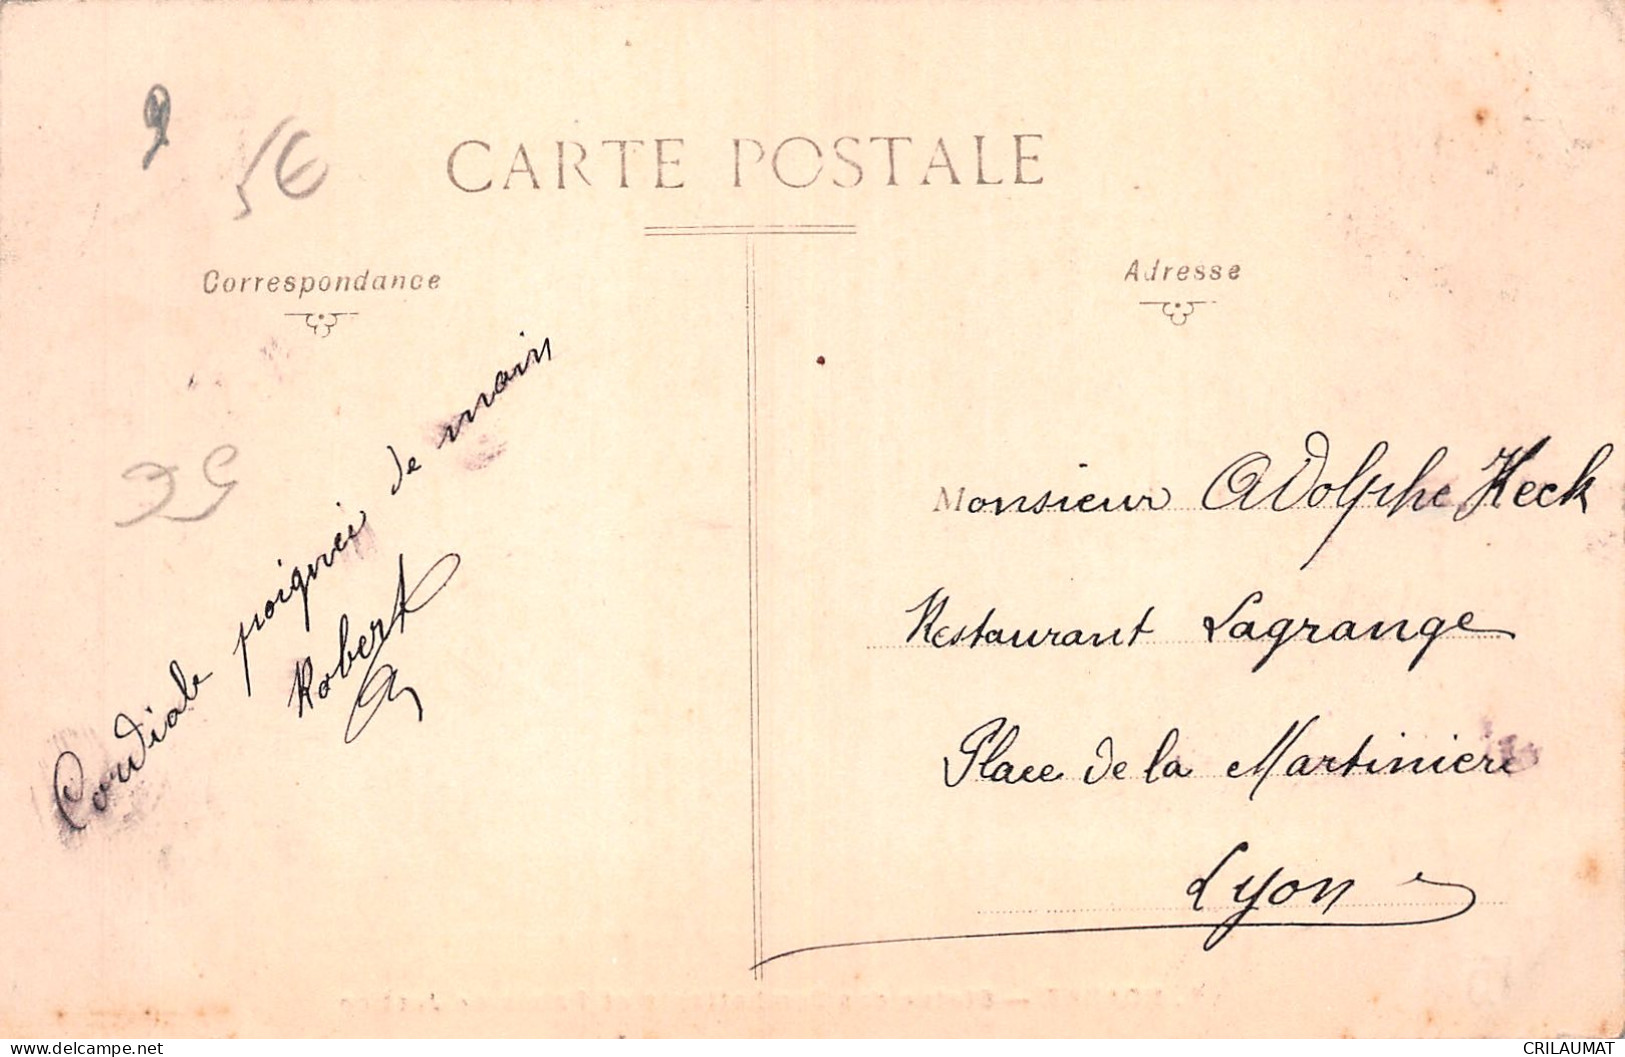 CARTE POSTALE
Correspondance
Adresse
5€
Cordiale poignée de main
Robert
Monsieur Adolphe Heck
Restaurant Lagrange
Place de la Martinière
Lyon
CRILAUMAT